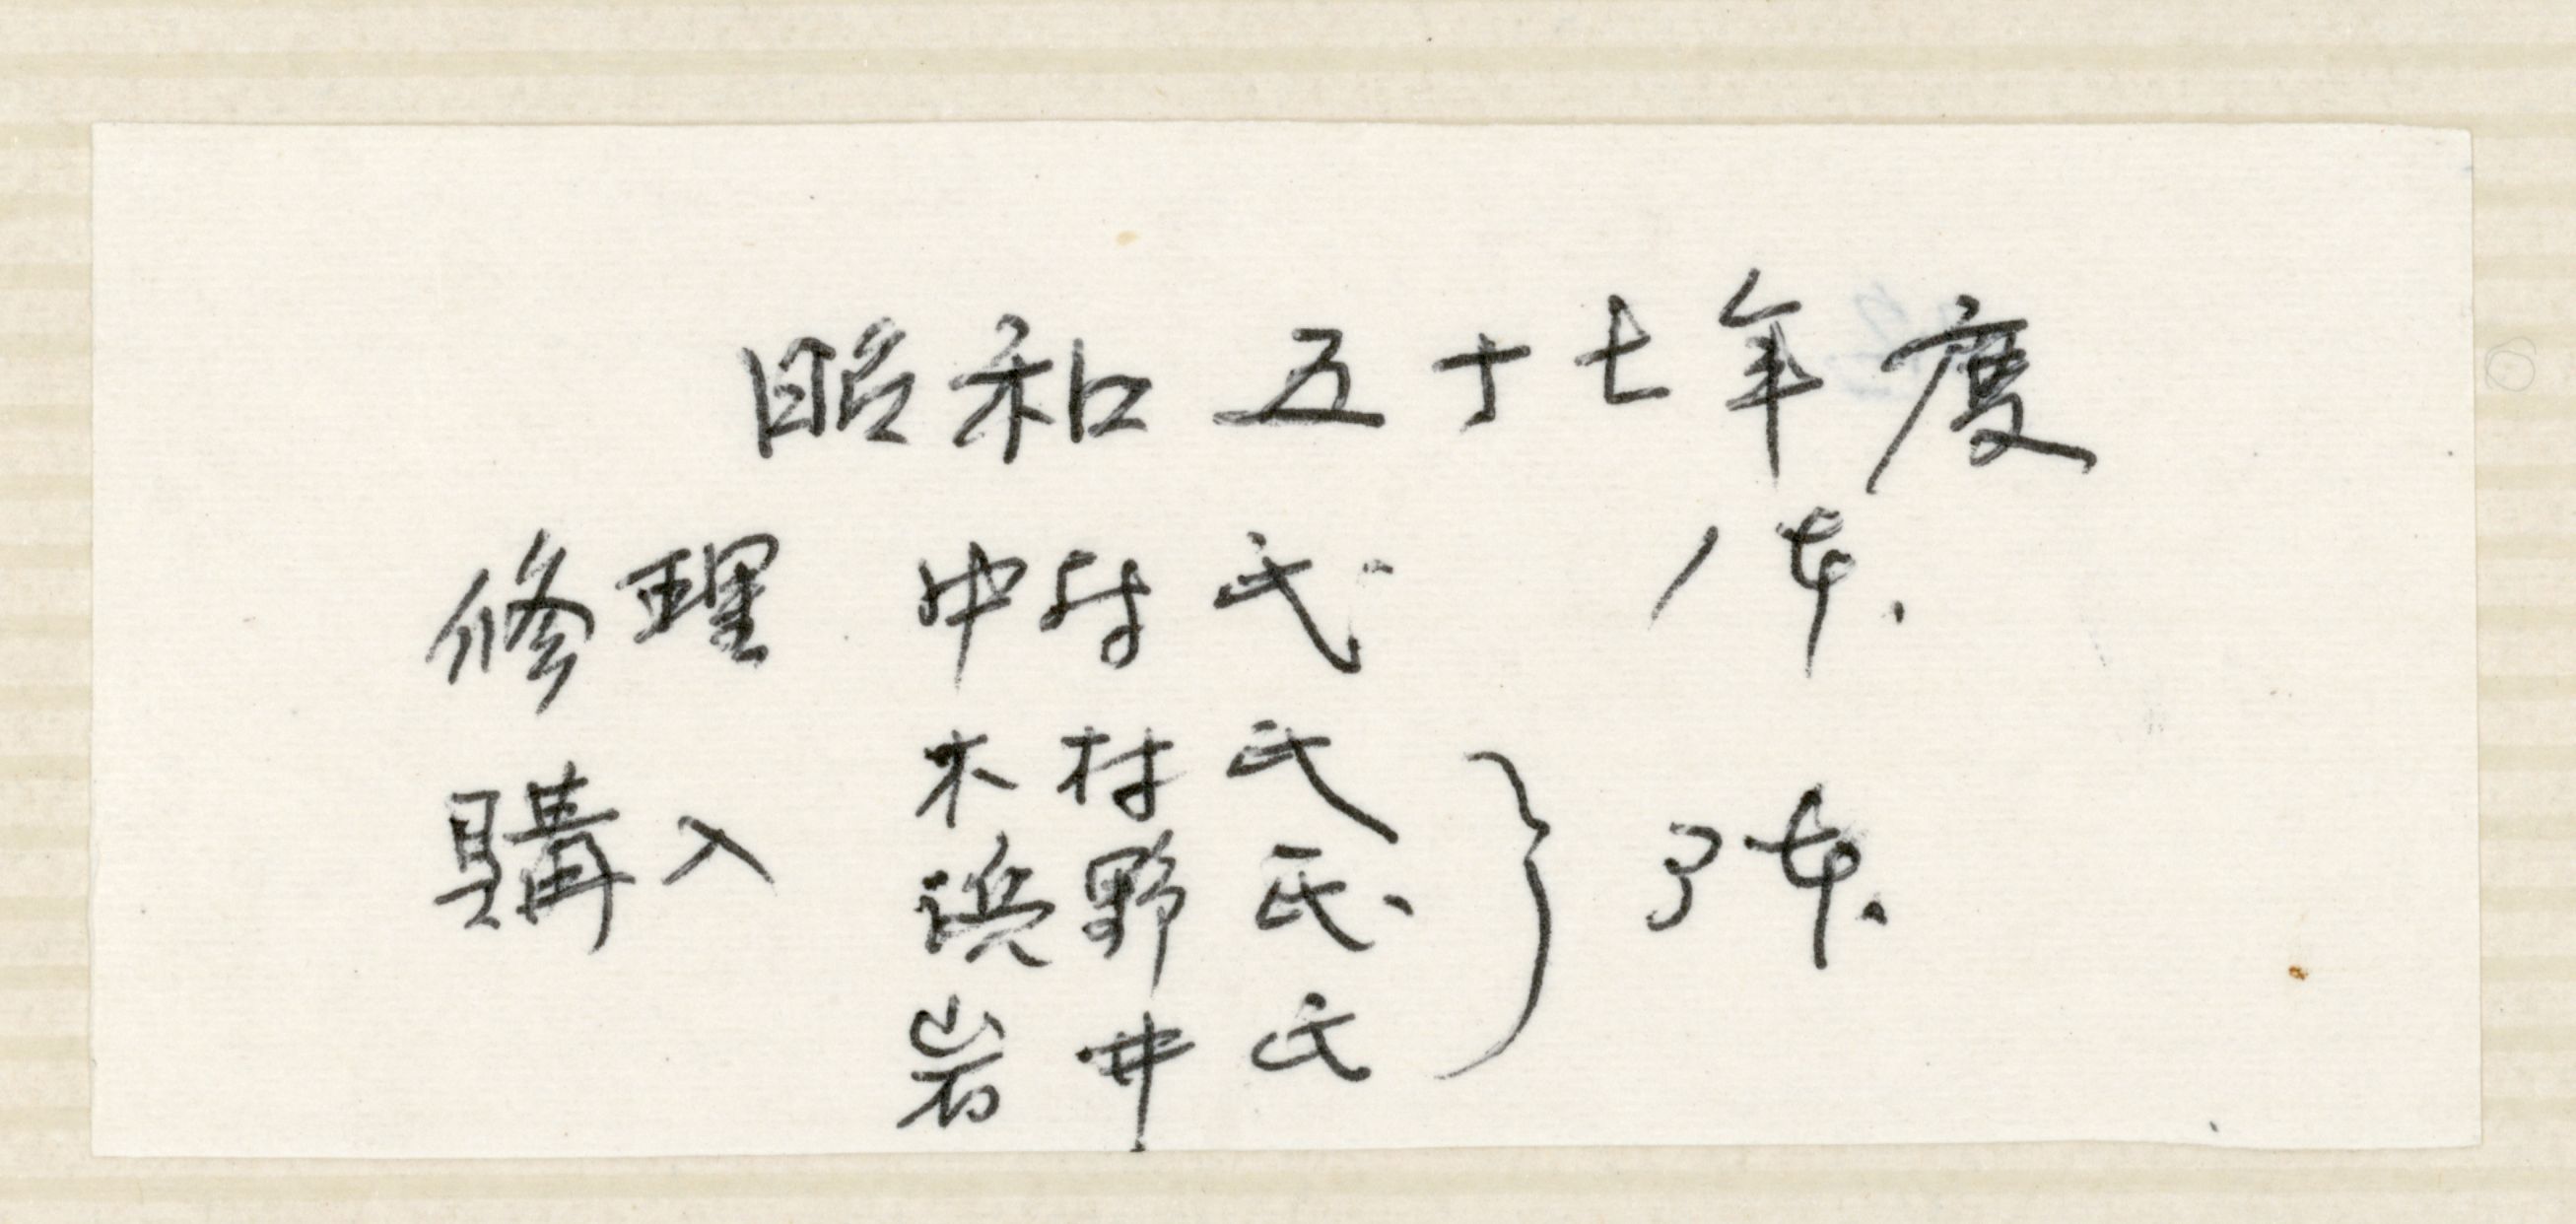 昭和五十七年度
修理 中村氏 1本.
木村氏
購入 浜野氏. } 3本.
岩井氏